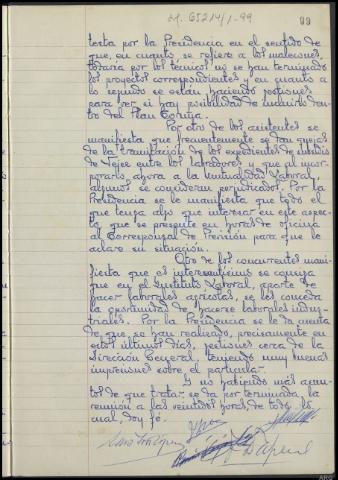 99
testa por la Presidencia en el sentido de
que, en cuanto se refiere a los malecones,
todavía por los técnicos no se han terminado
los proyectos correspondientes y en cuanto a
lo segundo se están haciendo gestiones
para ver si hay posibilidad de incluirlo den-
tro del Plan Coruña.
Por otro de los asistentes se
manifiesta que frecuentemente se dan quejas
de la tramitación de los expedientes de subsidio
de Vejez entre los labradores y que al incor-
porarlos, ahora a la Mutualidad Laboral,
algunos se consideran perjudicados. Por la
Presidencia se le manifiesta que todo el
que tenga algo que interesar en este aspec-
to, que se presente en horas de oficina
al Corresponsal de Previsión para que le
aclare su situación.
Otro de los concurrentes mani-
fiesta que es interesantísimo se consiga
que en el Instituto Laboral, aparte de
hacer laborales agrícolas, se les conceda
la oportunidad de hacerse laborales indus-
triales. Por la Presidencia se le da cuenta
de que se han realizado, precisamente en
estos últimos días, gestiones cerca de la
Dirección General, teniendo muy buenas
impresiones sobre el particular.
Y no habiendo más asun-
tos de que tratar, se da por terminada la
reunión a las veintidós horas, de todo lo
cual, doy fé.